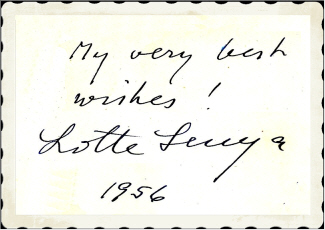 My very best
wishes!
Lotte Lenya
1956